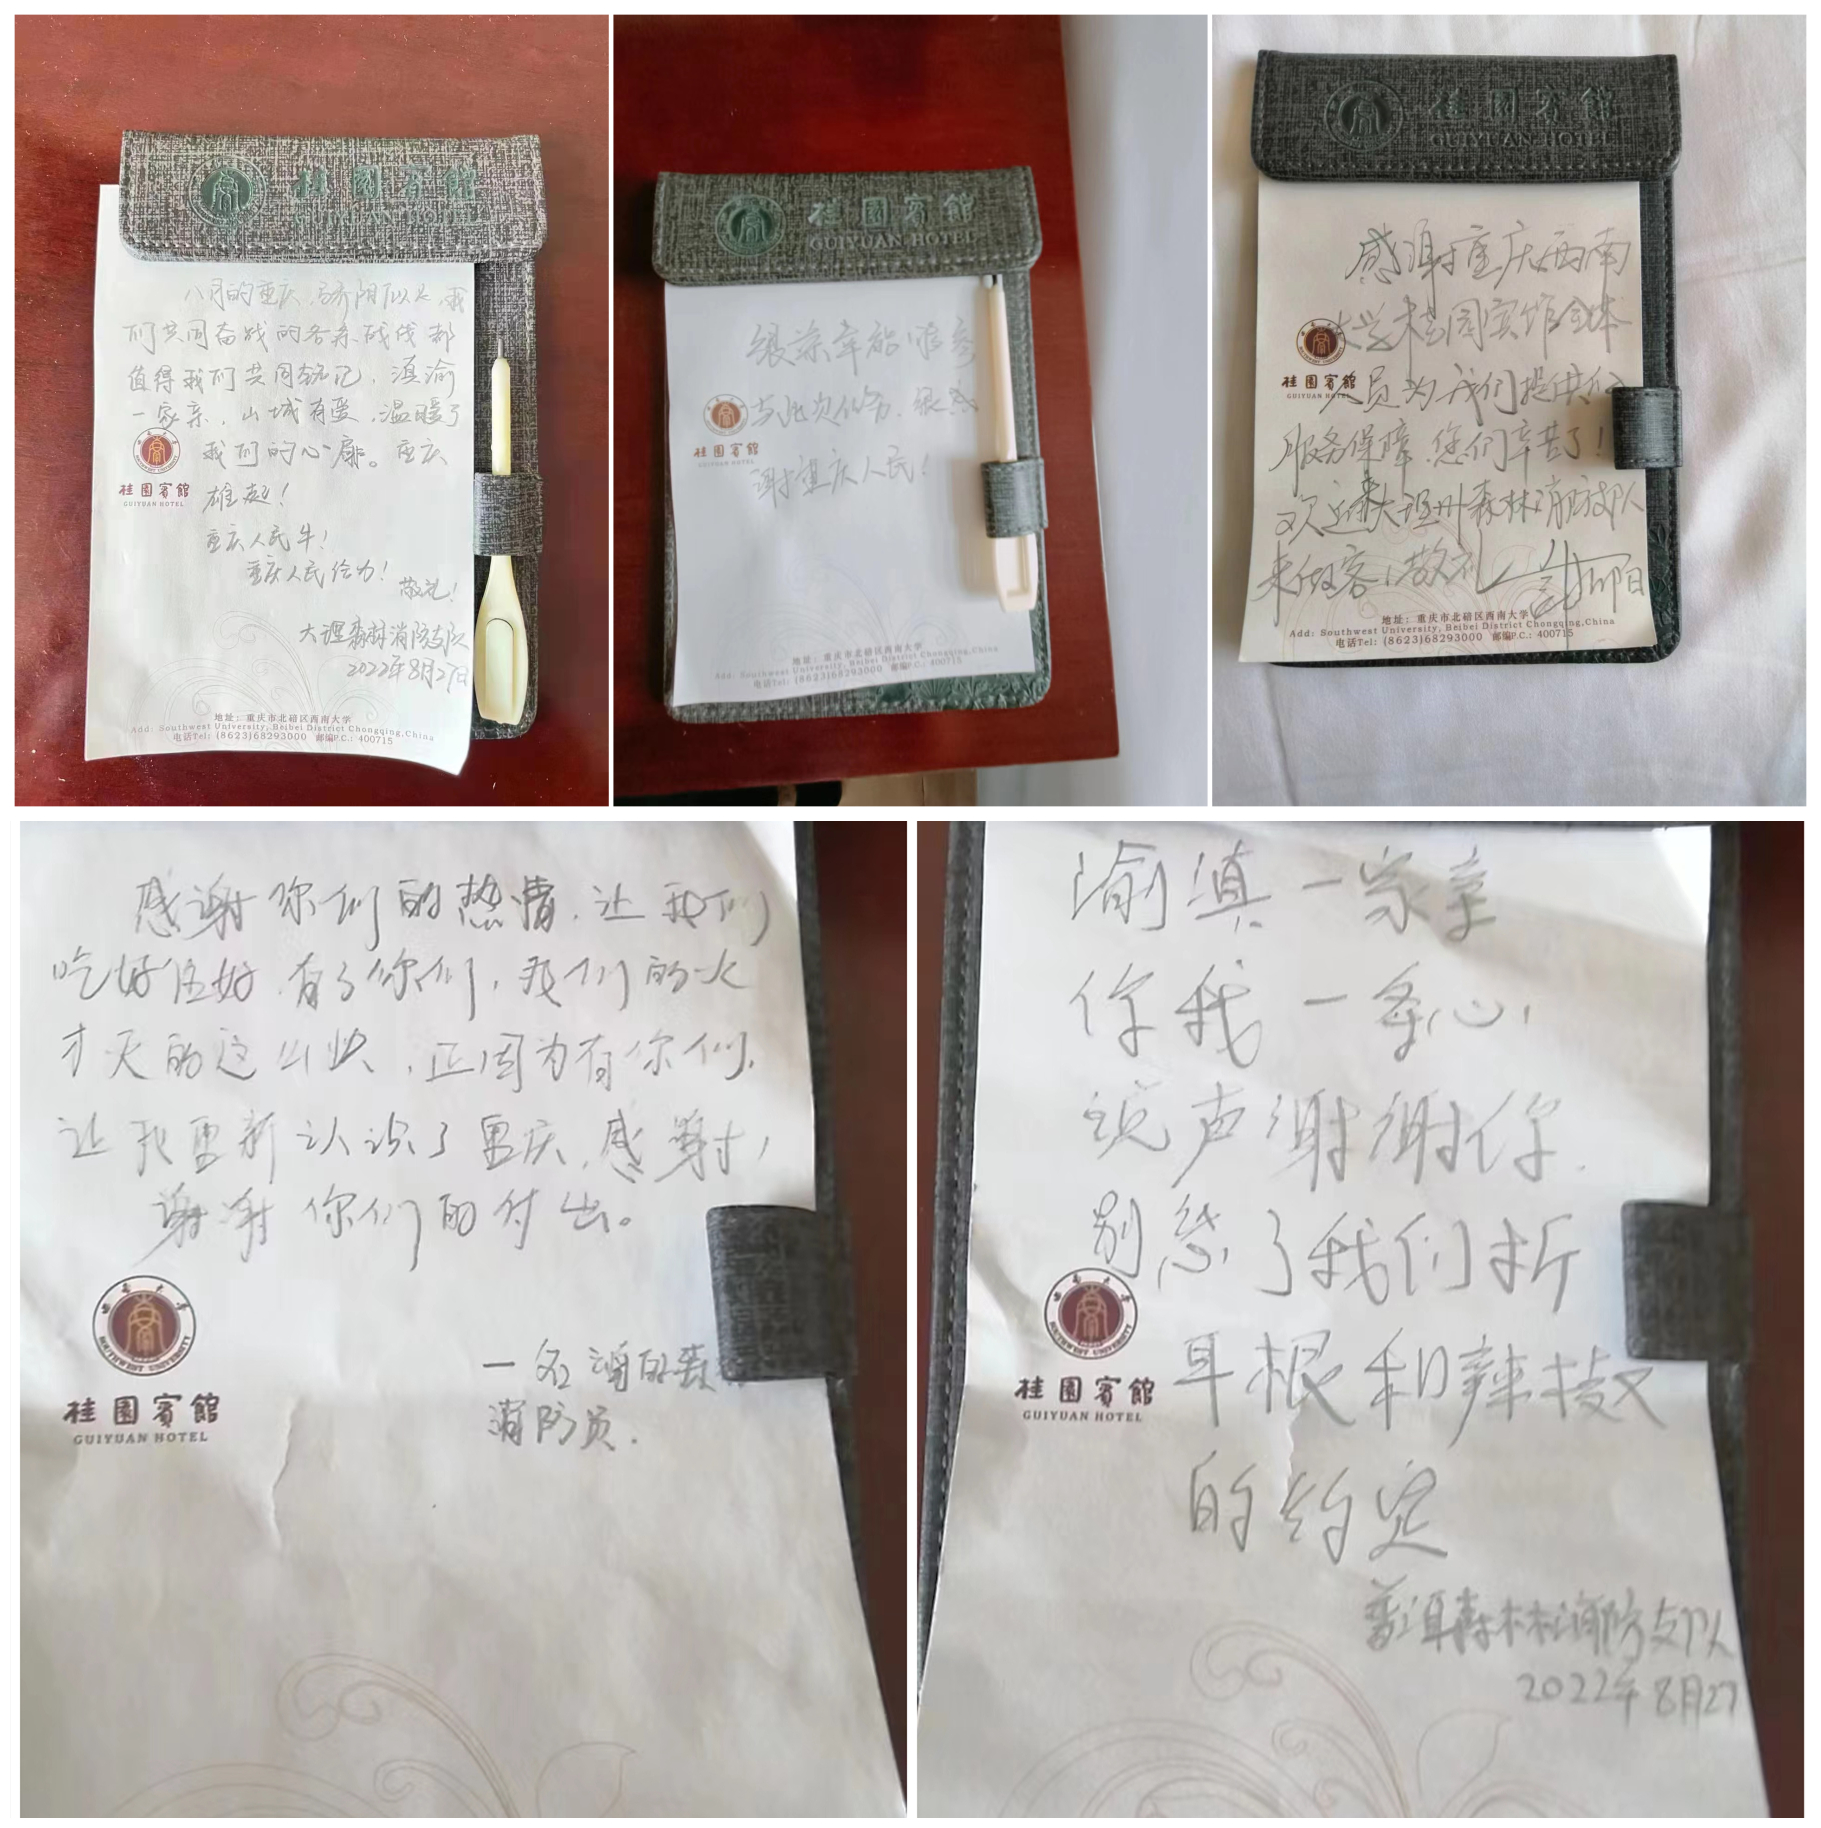 桂園賓館
GUIYUAN HOTEL
八月的重庆,骄阳似火,我
们共同奋战的各条战线都
值得我们共同铭记,滇渝
一家亲,山城有爱,温暖了
我们的心扉。重庆
雄起!
重庆人民牛!
重庆人民给力!
敬礼!
大理森林消防支队
2022年8月27日
桂園賓館
GUIYUAN HOTEL
地址:重庆市北碚区西南大学
Add: Southwest University, Beibei District Chongqing,China
电话Tel: (8623)68293000 邮编P.C.: 400715
桂園賓館
GUIYUAN HOTEL
很荣幸能够参
与此次任务,很感
谢重庆人民!
桂園賓館
GUIYUAN HOTEL
地址:重庆市北碚区西南大学
Add: Southwest University, Beibei District Chongqing,China
电话Tel: (8623)68293000 邮编P.C.: 400715
桂園賓館
GUIYUAN HOTEL
感谢重庆西南
大学桂园宾馆全体
人员为我们提供的
服务保障,您们辛苦了!
欢迎来大理州森林消防支队
来做客,敬礼
桂園賓館
GUIYUAN HOTEL
地址:重庆市北碚区西南大学
Add: Southwest University, Beibei District Chongqing,China
电话Tel: (8623)68293000 邮编P.C.: 400715
感谢你们的热情,让我们
吃好住好,有了你们,我们的火
才灭的这么快,正因为有你们,
让我重新认识了重庆,感谢,
谢谢你们的付出。
一名
消防员.
西南大学
SOUTHWEST UNIVERSITY
桂園賓館
GUIYUAN HOTEL
渝滇一家亲
你我一条心,
说声谢谢你.
别忘了我们折
耳根和辣椒
的约定
普洱森林消防支队
2022年8月27
西南大学
SOUTHWEST UNIVERSITY
桂園賓館
GUIYUAN HOTEL